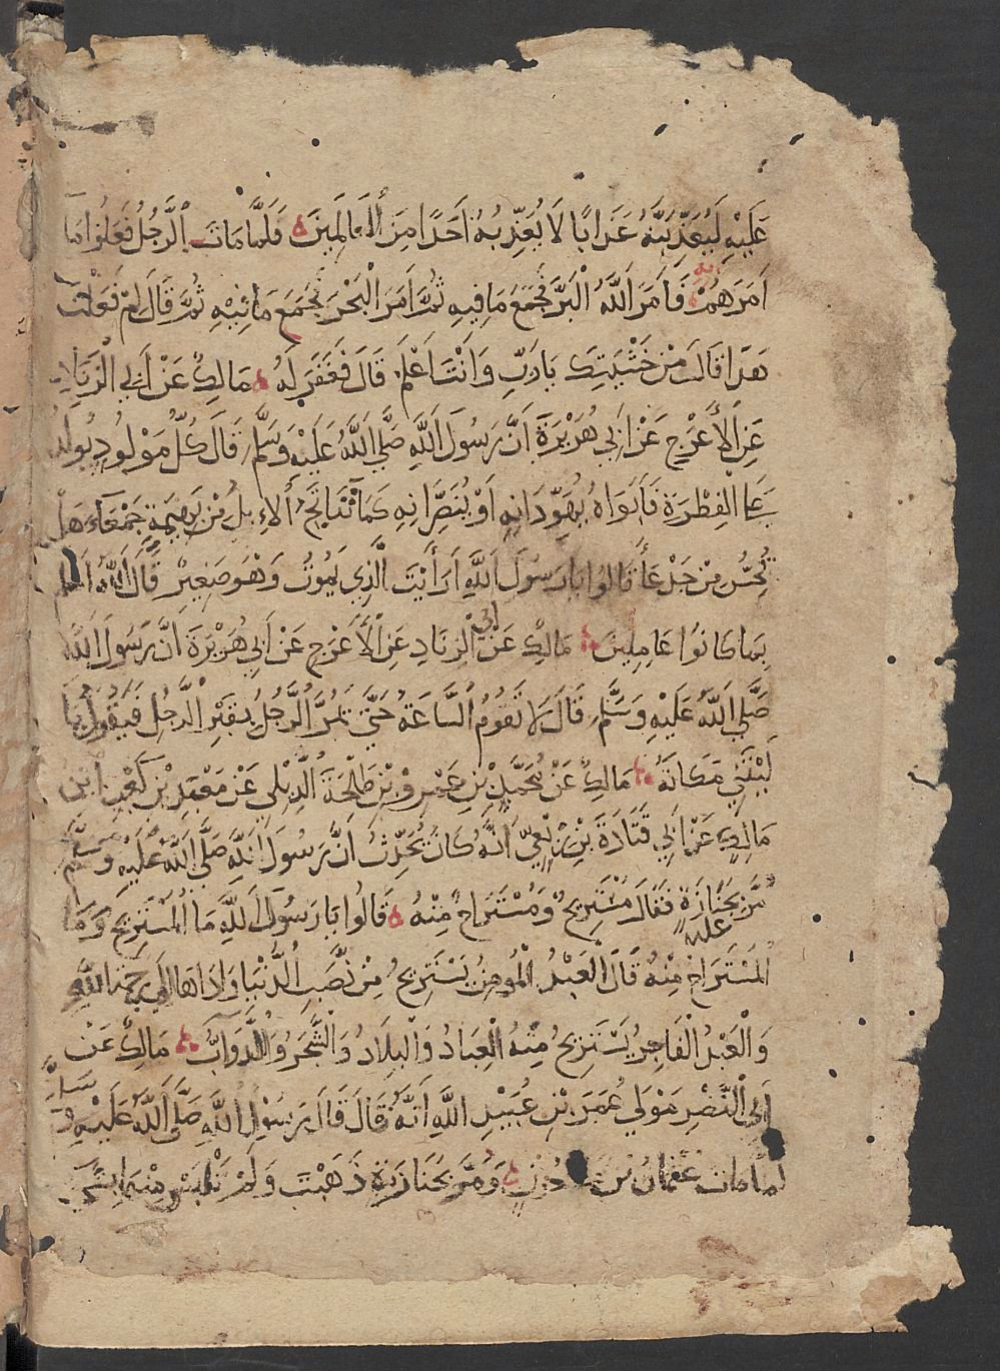 عَلَيْهِ لَيُعَذِّبَنَّهُ عَذَابًا لَا يُعَذِّبُهُ أَحَدًا مِنَ الْعَالَمِينَ ه فَلَمَّا مَاتَ الرَّجُلُ فَعَلُوا مَا
أَمَرَهُمْ بِهِ فَأَمَرَ اللَّهُ الْبَرَّ فَجَمَعَ مَا فِيهِ ثُمَّ أَمَرَ الْبَحْرَ فَجَمَعَ مَا فِيْهِ ثُمَّ قَالَ لِمَ فَعَلْتَ
هَذَا قَالَ مِنْ خَشْيَتِكَ يَا رَبِّ وَأَنْتَ أَعْلَمُ قَالَ فَغَفَرَ لَهُ ه مَالِكٌ عَنْ أَبِي الزِّنَادِ
عَنِ الْأَعْرَجِ عَنْ أَبِي هُرَيْرَةَ أَنَّ رَسُولَ اللَّهِ صَلَّى اللَّهُ عَلَيْهِ وَسَلَّمَ قَالَ كُلُّ مَوْلُودٍ يُولَدُ
عَلَى الْفِطْرَةِ فَأَبَوَاهُ يُهَوِّدَانِهِ أَوْ يُنَصِّرَانِهِ كَمَا تَنَاتَجُ الْإِبِلُ مِنْ بَهِيمَةٍ جَمْعَاءَ هَلْ
تُحِسُّ مِنْ جَدْعَاءَ قَالُوا يَا رَسُولَ اللَّهِ أَرَأَيْتَ الَّذِي يَمُوتُ وَهُوَ صَغِيرٌ قَالَ اللَّهُ أَعْلَمُ
بِمَا كَانُوا عَامِلِينَ ه مَالِكٌ عَنْ أَبِي الزِّنَادِ عَنِ الْأَعْرَجِ عَنْ أَبِي هُرَيْرَةَ أَنَّ رَسُولَ اللَّهِ
صَلَّى اللَّهُ عَلَيْهِ وَسَلَّمَ قَالَ لَا تَقُومُ السَّاعَةُ حَتَّى يَمُرَّ الرَّجُلُ بِقَبْرِ الرَّجُلِ فَيَقُولُ يَا
لَيْتَنِي مَكَانَهُ ه مَالِكٌ عَنْ مُحَمَّدِ بْنِ عَمْرِو بْنِ طَلْحَةَ الدِّيلِي عَنْ مَعْبَدِ بْنِ كَعْبِ ابْنِ
مَالِكٍ عَنْ أَبِي قَتَادَةَ بْنِ رِبْعِيٍّ أَنَّهُ كَانَ يُحَدِّثُ أَنَّ رَسُولَ اللَّهِ صَلَّى اللَّهُ عَلَيْهِ وَسَلَّمَ
مُرَّ عليه بِجَنَازَةٍ فَقَالَ مُسْتَرِيحٌ وَمُسْتَرَاحٌ مِنْهُ ه قَالُوا يَا رَسُولَ اللَّهِ مَا الْمُسْتَرِيحُ وَمَا
الْمُسْتَرَاحُ مِنْهُ قَالَ الْعَبْدُ الْمُؤْمِنُ يَسْتَرِيحُ مِنْ نَصَبِ الدُّنْيَا وَأَذَاهَا إِلَى رَحْمَةِ اللَّهِ
وَالْعَبْدُ الْفَاجِرُ يَسْتَرِيحُ مِنْهُ الْعِبَادُ وَالْبِلَادُ وَالشَّجَرُ وَالدَّوَابُّ ه مَالِكٌ عَنْ
أَبِي النَّضْرِ مَوْلَى عُمَرَ بْنِ عُبَيْدِ اللَّهِ أَنَّهُ قَالَ قَالَ رَسُولُ اللَّهِ صَلَّى اللَّهُ عَلَيْهِ وَسَلَّمَ
لَمَّا مَاتَ عُثْمَانُ بْنُ ه وَمُرَّ بِجَنَازَتِهِ ذَهَبْتَ وَلَمْ تَلَبَّسْ مِنْهَا بِشَيْءٍ